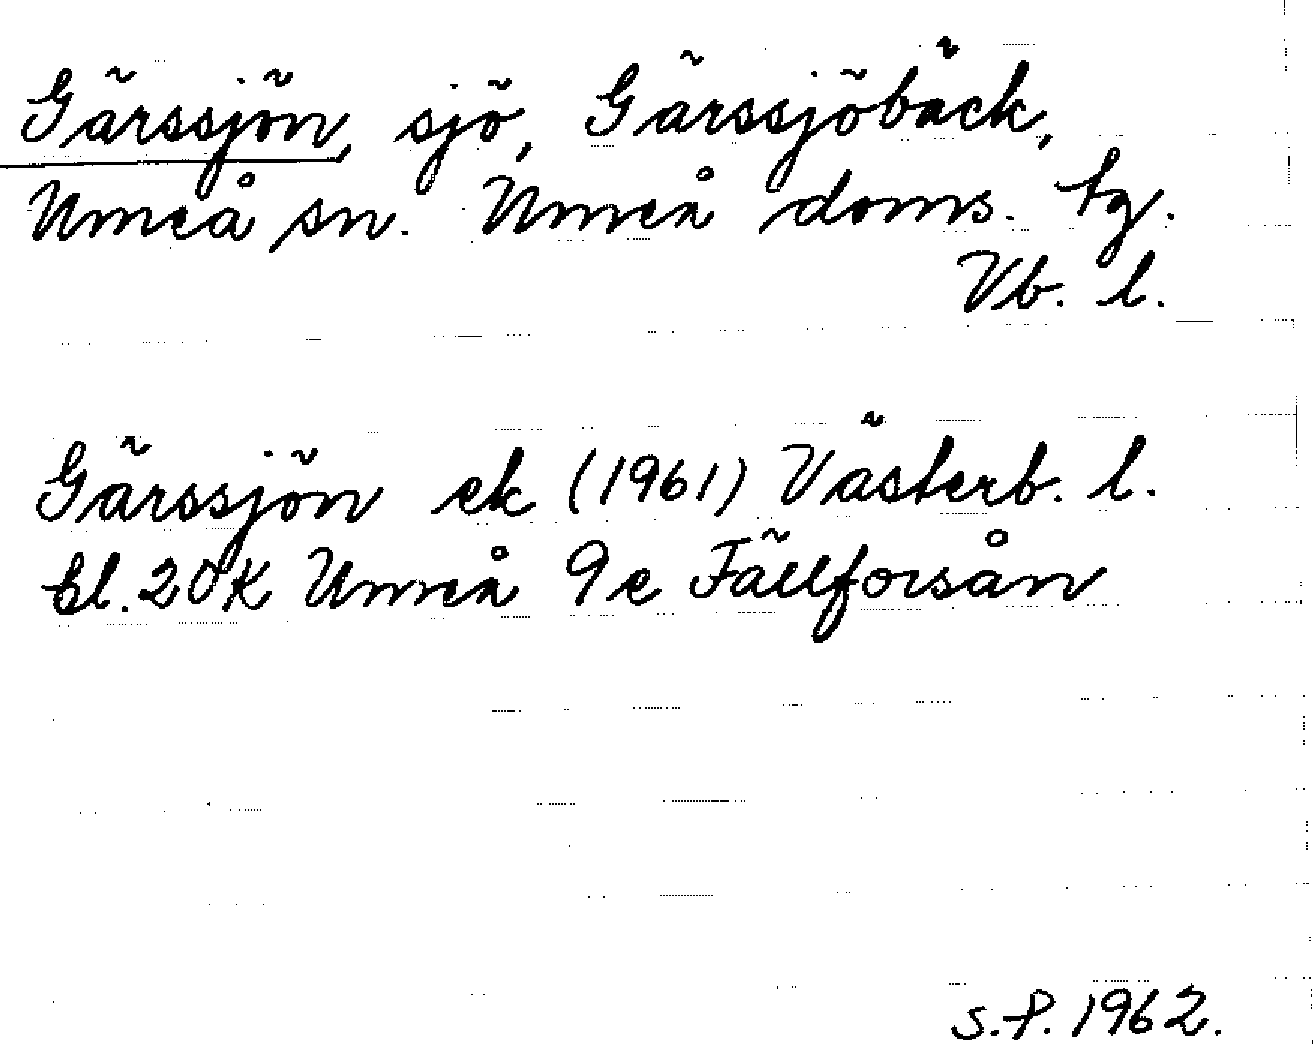 Gärssjön, sjö, Gärssjöbäck,
Umeå sn. Umeå doms. tg.
Vb. l.
Gärssjön ek (1961) Västerb. l.
bl. 20K Umeå 9e Fällforsån
S.P. 1962.